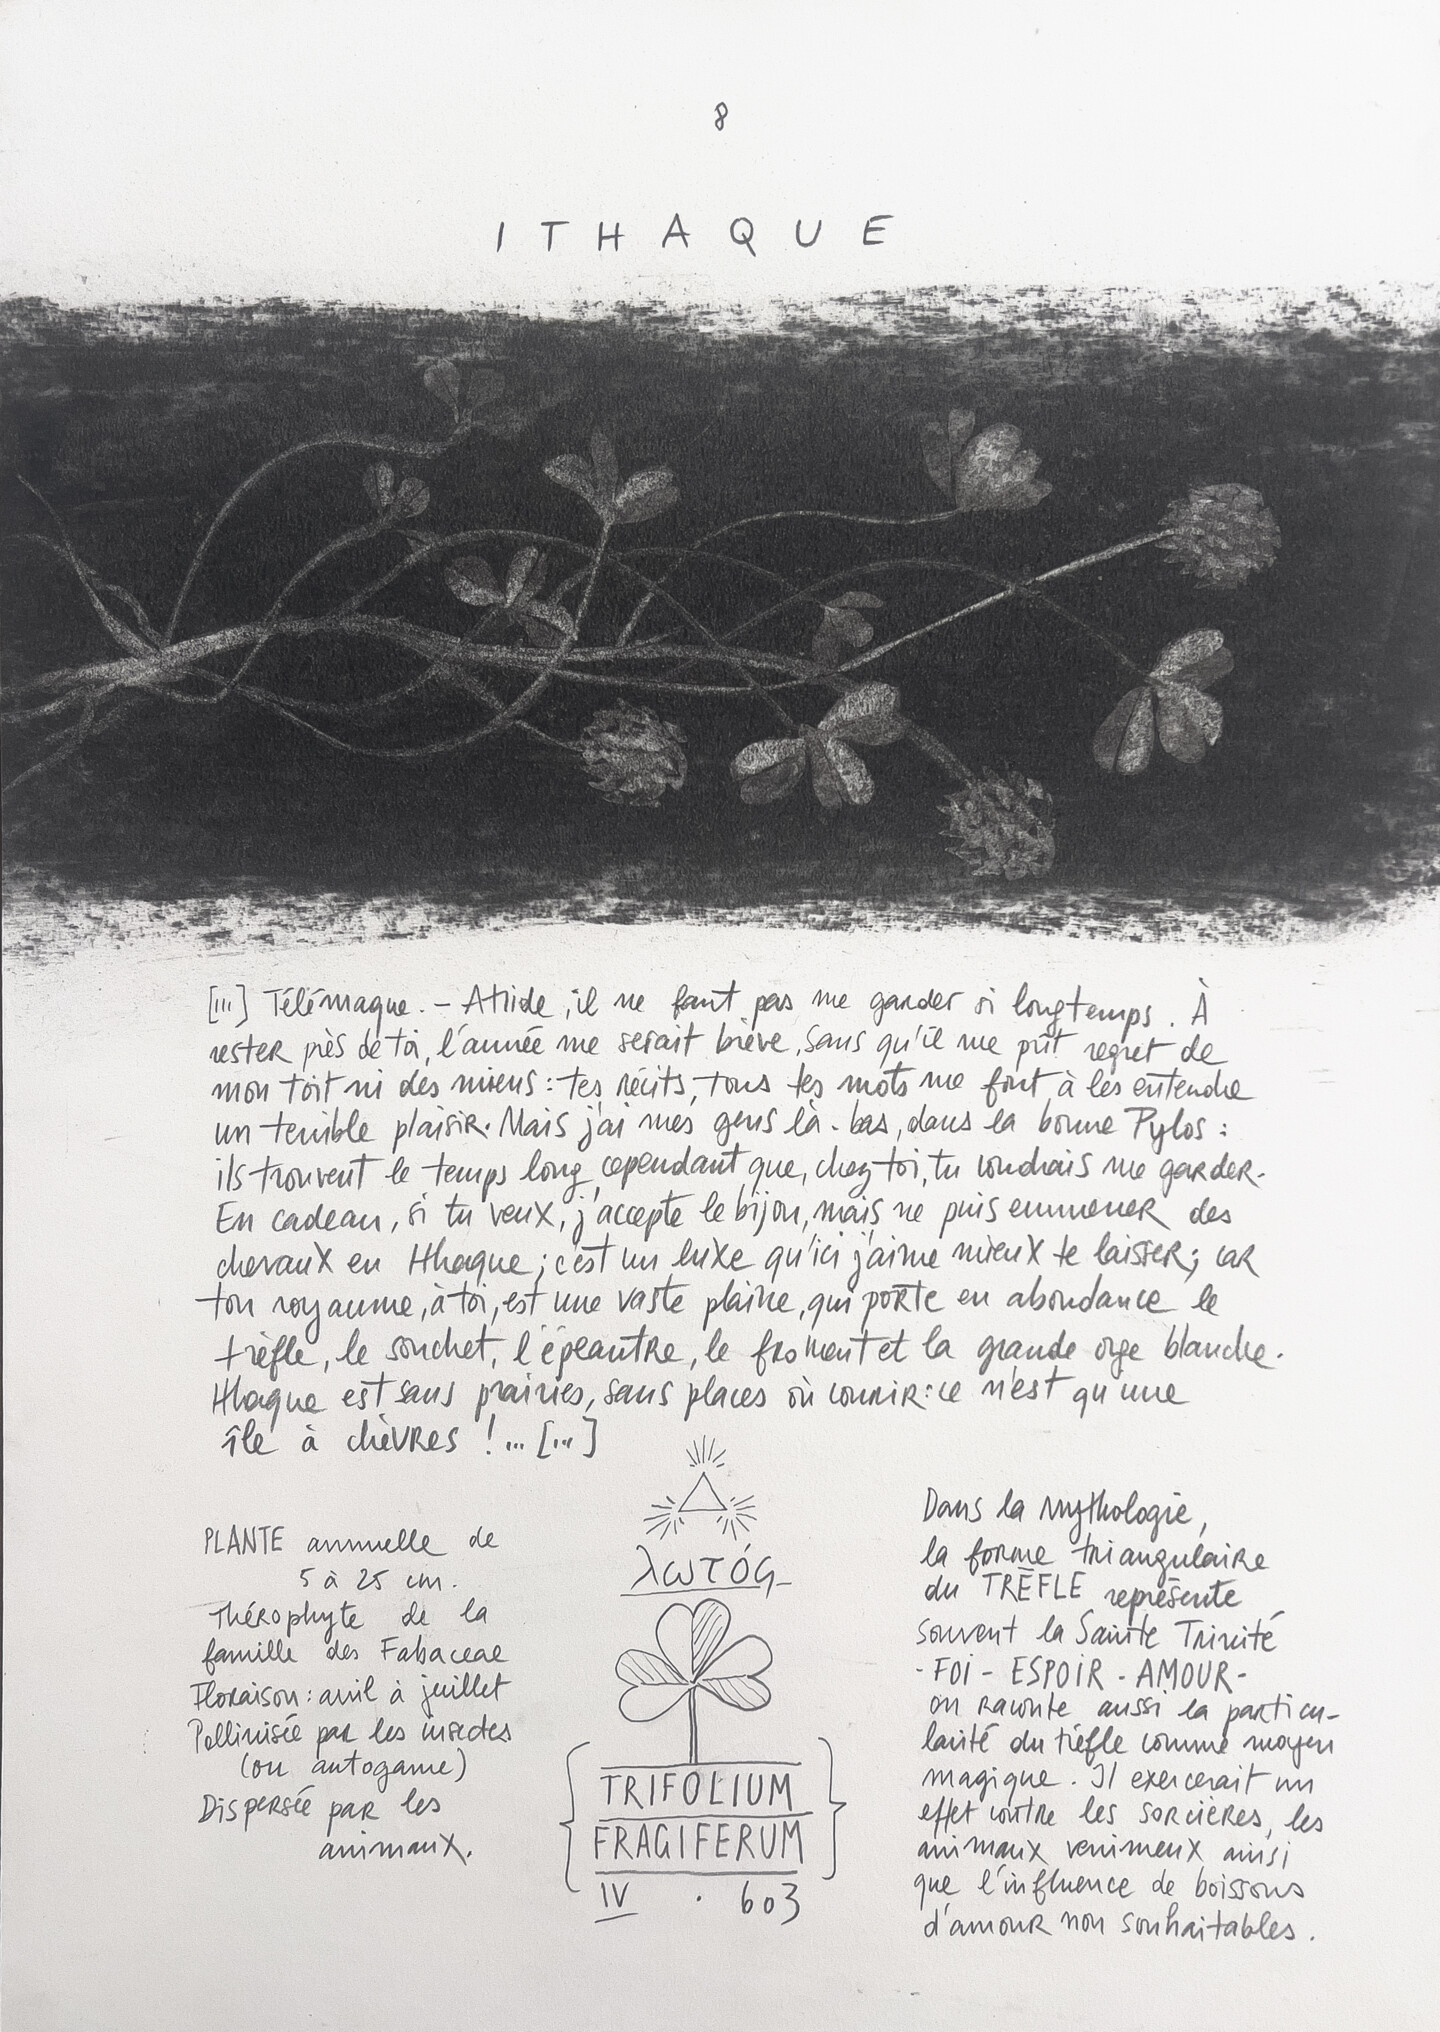 8
ITHAQUE
[...] Télémaque. – Atride, il ne faut pas me garder si longtemps. À
rester près de toi, l'année me serait brève, sans qu'il me prît regret de
mon toit ni des miens : tes récits, tous tes mots me font à les entendre
un terrible plaisir. Mais j'ai mes gens là-bas, dans la bonne Pylos :
ils trouvent le temps long, cependant que, chez toi, tu voudrais me garder.
En cadeau, si tu veux, j'accepte le bijou, mais ne puis emmener des
chevaux en Ithaque ; c'est un luxe qu'ici j'aime mieux te laisser ; car
ton royaume, à toi, est une vaste plaine, qui porte en abondance le
trèfle, le souchet, l'épeautre, le froment et la grande orge blanche.
Ithaque est sans prairies, sans places où courir : ce n'est qu'une
île à chèvres !... [...]
PLANTE annuelle de
5 à 25 cm.
Thérophyte de la
famille des Fabaceae
Floraison : avril à juillet
Pollinisée par les insectes
(ou autogame)
Dispersée par les
animaux.
λωτός
TRIFOLIUM
FRAGIFERUM
IV . 603
Dans la mythologie,
la forme triangulaire
du TRÈFLE représente
souvent la Sainte Trinité
- FOI - ESPOIR - AMOUR -
on raconte aussi la particu-
larité du trèfle comme moyen
magique. Il exercerait un
effet contre les sorcières, les
animaux venimeux ainsi
que l'influence de boissons
d'amour non souhaitables.